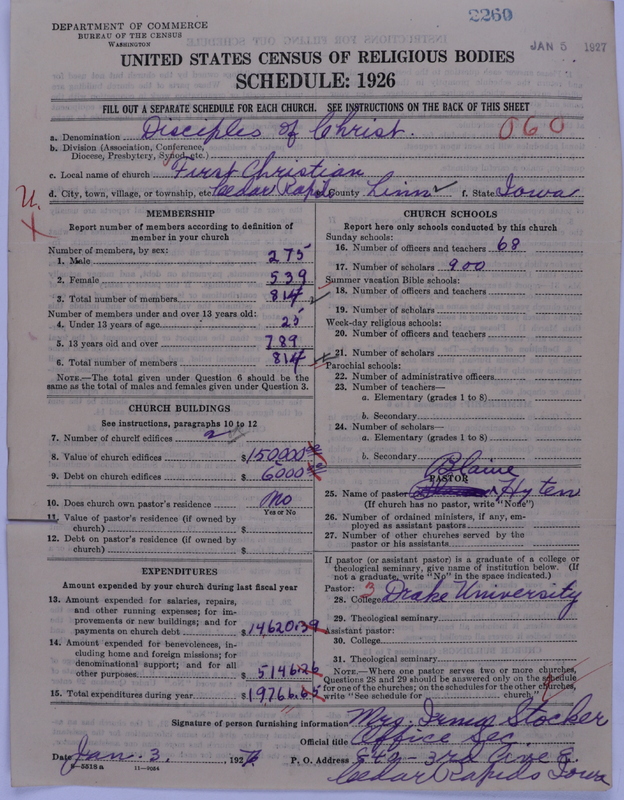 2260
DEPARTMENT OF COMMERCE
BUREAU OF THE CENSUS
WASHINGTON
JAN 5 1927
UNITED STATES CENSUS OF RELIGIOUS BODIES
SCHEDULE: 1926
FILL OUT A SEPARATE SCHEDULE FOR EACH CHURCH. SEE INSTRUCTIONS ON THE BACK OF THIS SHEET
a. Denomination Disciples of Christ. 060
b. Division (Association, Conference, Diocese, Presbytery, Synod, etc.)
c. Local name of church First Christian
d. City, town, village, or township, etc. Cedar Rapids County Linn f. State Iowa
MEMBERSHIP
Report number of members according to definition of
member in your church
Number of members, by sex:
1. Male 275
2. Female 539
3. Total number of members 814
Number of members under and over 13 years old:
4. Under 13 years of age 25
5. 13 years old and over 789
6. Total number of members 814
NOTE.—The total given under Question 6 should be the
same as the total of males and females given under Question 3.
CHURCH BUILDINGS
See instructions, paragraphs 10 to 12
7. Number of church edifices 2
8. Value of church edifices $150,000
9. Debt on church edifices $6000
10. Does church own pastor's residence No
Yes or No
11. Value of pastor's residence (if owned by
church) $
12. Debt on pastor's residence (if owned by
church) $
EXPENDITURES
Amount expended by your church during last fiscal year
13. Amount expended for salaries, repairs,
and other running expenses; for im-
provements or new buildings; and for
payments on church debt $14620.39
14. Amount expended for benevolences, in-
cluding home and foreign missions; for
denominational support; and for all
other purposes $5146.26
15. Total expenditures during year $19766.65
CHURCH SCHOOLS
Report here only schools conducted by this church
Sunday schools:
16. Number of officers and teachers 68
17. Number of scholars 900
Summer vacation Bible schools:
18. Number of officers and teachers
19. Number of scholars
Week-day religious schools:
20. Number of officers and teachers
21. Number of scholars
Parochial schools:
22. Number of administrative officers
23. Number of teachers—
a. Elementary (grades 1 to 8)
b. Secondary
24. Number of scholars—
a. Elementary (grades 1 to 8)
b. Secondary
PASTOR
25. Name of pastor Blaine Hyten
(If church has no pastor, write "None")
26. Number of ordained ministers, if any, em-
ployed as assistant pastors
27. Number of other churches served by the
pastor or his assistants
If pastor (or assistant pastor) is a graduate of a college or
theological seminary, give name of institution below. (If
not a graduate, write "No" in the space indicated.)
Pastor:
28. College Drake University
29. Theological seminary
Assistant pastor:
30. College
31. Theological seminary
NOTE.—Where one pastor serves two or more churches,
Questions 28 and 29 should be answered only on the schedule
for one of the churches; on the schedules for the other churches,
write "See schedule for church."
Signature of person furnishing information Mrs. Irma Stocker
Official title Office Sec.
Date Jan. 3. 1927 P. O. Address 840 - 3rd Ave E.
Cedar Rapids Iowa
8-5518a 11-9054